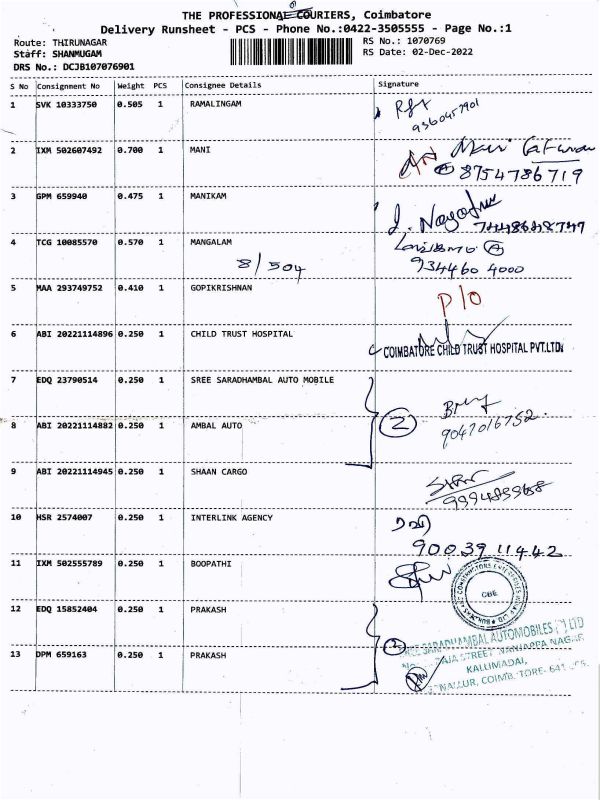 THE PROFESSIONAL COURIERS, Coimbatore
Delivery Runsheet - PCS - Phone No.:0422-3505555 - Page No.:1
Route: THIRUNAGAR
RS No.: 1070769
Staff: SHANMUGAM
RS Date: 02-Dec-2022
DRS No.: DCJB107076901
S No Consignment No Weight PCS Consignee Details Signature
1 SVK 10333750 0.505 1 RAMALINGAM
9360457901
2 IXM 502607492 0.700 1 MANI
8754786719
3 GPM 659940 0.475 1 MANIKAM
4 TCG 10085570 0.570 1 MANGALAM
8/504
934460 4000
5 MAA 293749752 0.410 1 GOPIKRISHNAN
P/O
6 ABI 20221114896 0.250 1 CHILD TRUST HOSPITAL
COIMBATORE CHILD TRUST HOSPITAL PVT.LTD.
7 EDQ 23790514 0.250 1 SREE SARADHAMBAL AUTO MOBILE
2
8 ABI 20221114882 0.250 1 AMBAL AUTO
9047016752
9 ABI 20221114945 0.250 1 SHAAN CARGO
10 HSR 2574007 0.250 1 INTERLINK AGENCY
90039 11442
11 IXM 502555789 0.250 1 BOOPATHI
CBE
12 EDQ 15852404 0.250 1 PRAKASH
2
SARADHAMBAL AUTOMOBILES (I) LTD
STREET NANJAPPA NAGAR
13 DPM 659163 0.250 1 PRAKASH
KALLIMADAI,
COIMBATORE- 641